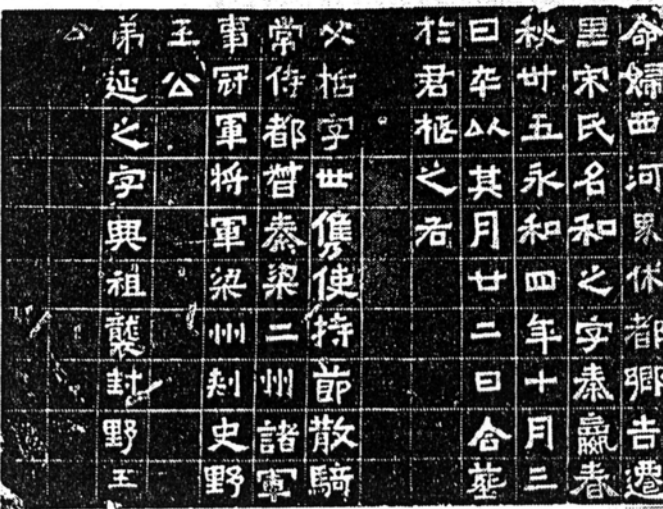 命婦西河界休都鄉吉遷
里宋氏名和之字秦嬴春
秋卅五永和四年十月三
日卒以其月廿二日合葬
於君柩之右
父悊字世儁使持節散騎
常侍都督秦梁二州諸軍
事冠軍將軍梁州刺史野
王公
弟延之字興祖襲封野王
公